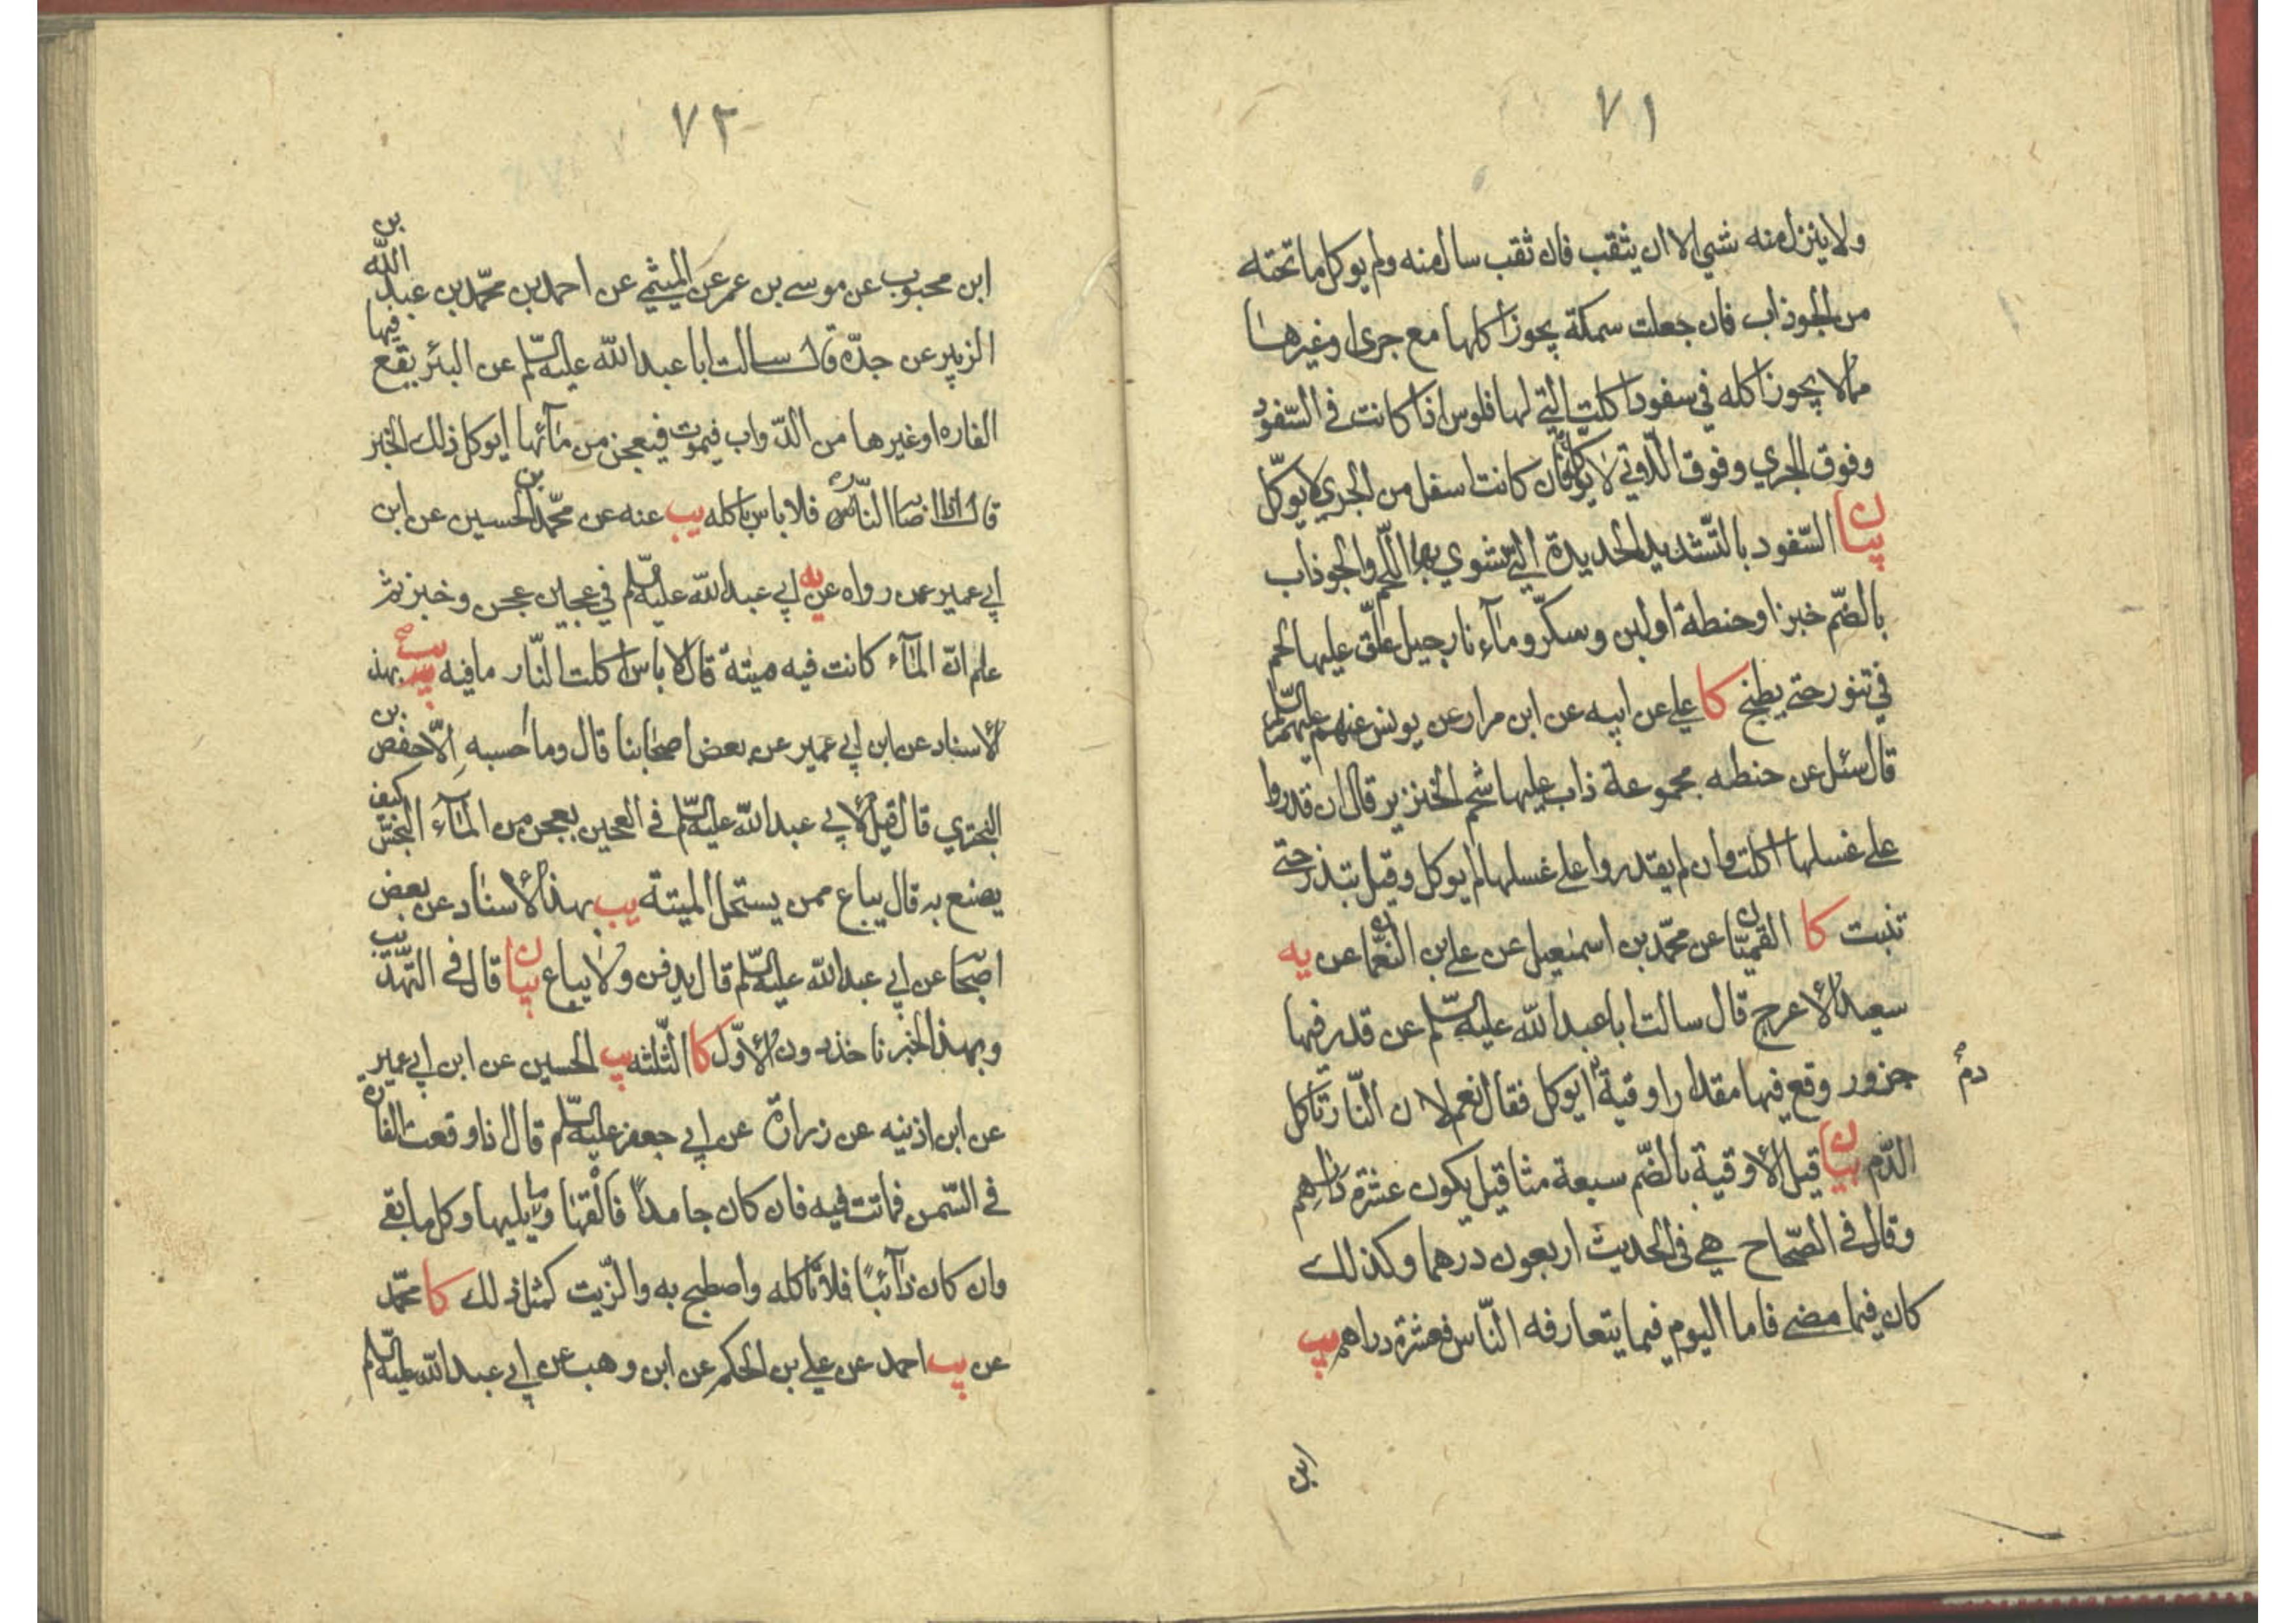 ٧١
ولا ينزل منه شيء الا ان يثقب فان ثقب سال منه ولم يوكل ما تحته
من الجوذاب فان جعلت سمكة يجوز اكلها مع جرى او غيرها
مما لا يجوز اكله في سفود اكلت التي لها فلوس اذا كانت في السّفود
وفوق الجري وفوق اللّاتي لا يوكل فان كانت اسفل من الجري لا يوكل
بيان السّفود بالتّشديد الحديدة التي تشوي بها اللّحم والجوذاب
بالضّم خبز او حنطة او لبن وسكّر وماء نارجيل علّق عليها لحم
في تنور حتى يطبخ كا علي عن ابيه عن ابن مرار عن يونس عنهم عليهم السّلم
قال سئل عن حنطه مجموعة ذاب عليها شحم الخنزير قال ان قدروا
على غسلها اكلت وان لم يقدروا على غسلها لم يوكل وقيل تبذر حتى
تنبت كا القميّان عن محمّد بن اسمٰعيل عن علي بن النّعمان عن يه
سعيد الاعرج قال سالت ابا عبد الله عليه السّلم عن قدر فيها
جزور وقع فيها مقدار اوقية دم ايوكل فقال نعم لان النّار تاكل
الدّم بيان قيل الاوقية بالضّم سبعة مثاقيل يكون عشرة دراهم
وقال في الصّحاح هي في الحديث اربعون درهما وكذلك
كان فيما مضى فاما اليوم فيما يتعارفه النّاس فعشرة دراهم يب
ابن
٧٢
ابن محبوب عن موسى بن عمر عن الميثمي عن احمد بن محمّد بن عبد الله بن
الزبير عن جدّه قال سالت ابا عبد الله عليه السّلم عن البئر يقع فيها
الفاره او غيرها من الدّواب فيموت فيعجن من مآئها ايوكل ذلك الخبز
قال اذا اصابته النّار فلا باس باكله يب عنه عن محمّد بن الحسين عن ابن
ابي عمير عمن رواه عن يه ابي عبد الله عليه السّلم في عجين عجن وخبز ثم
علم انّ المآء كانت فيه ميتة قال لا باس اكلت النّار ما فيه يب بهذ
الاسناد عن ابن ابي عمير عن بعض اصحابنا قال وما احسبه الّا حفص بن
البختري قال قيل لابي عبد الله عليه السّلم في العجين يعجن من المآء النجس كيف
يصنع به قال يباع ممن يستحل الميتة يب بهذا الاسناد عن بعض
اصحابنا عن ابي عبد الله عليه السّلم قال يدفن ولا يباع بيان قال في التّهذيب
وبهذا الخبر ناخذ دون الاوّل كا الثّلثه يب الحسين عن ابن ابي عمير
عن ابن اذينه عن زرارة عن ابي جعفر عليه السّلم قال اذا وقعت الفارة
في السّمن فماتت فيه فان كان جامداً فألقها وما يليها وكل ما بقي
وان كان ذآئباً فلا تاكله واصطبح به والزّيت كمثل ذلك كا محمّد
عن يب احمد عن علي بن الحكم عن ابن وهب عن ابي عبد الله عليه السّلم